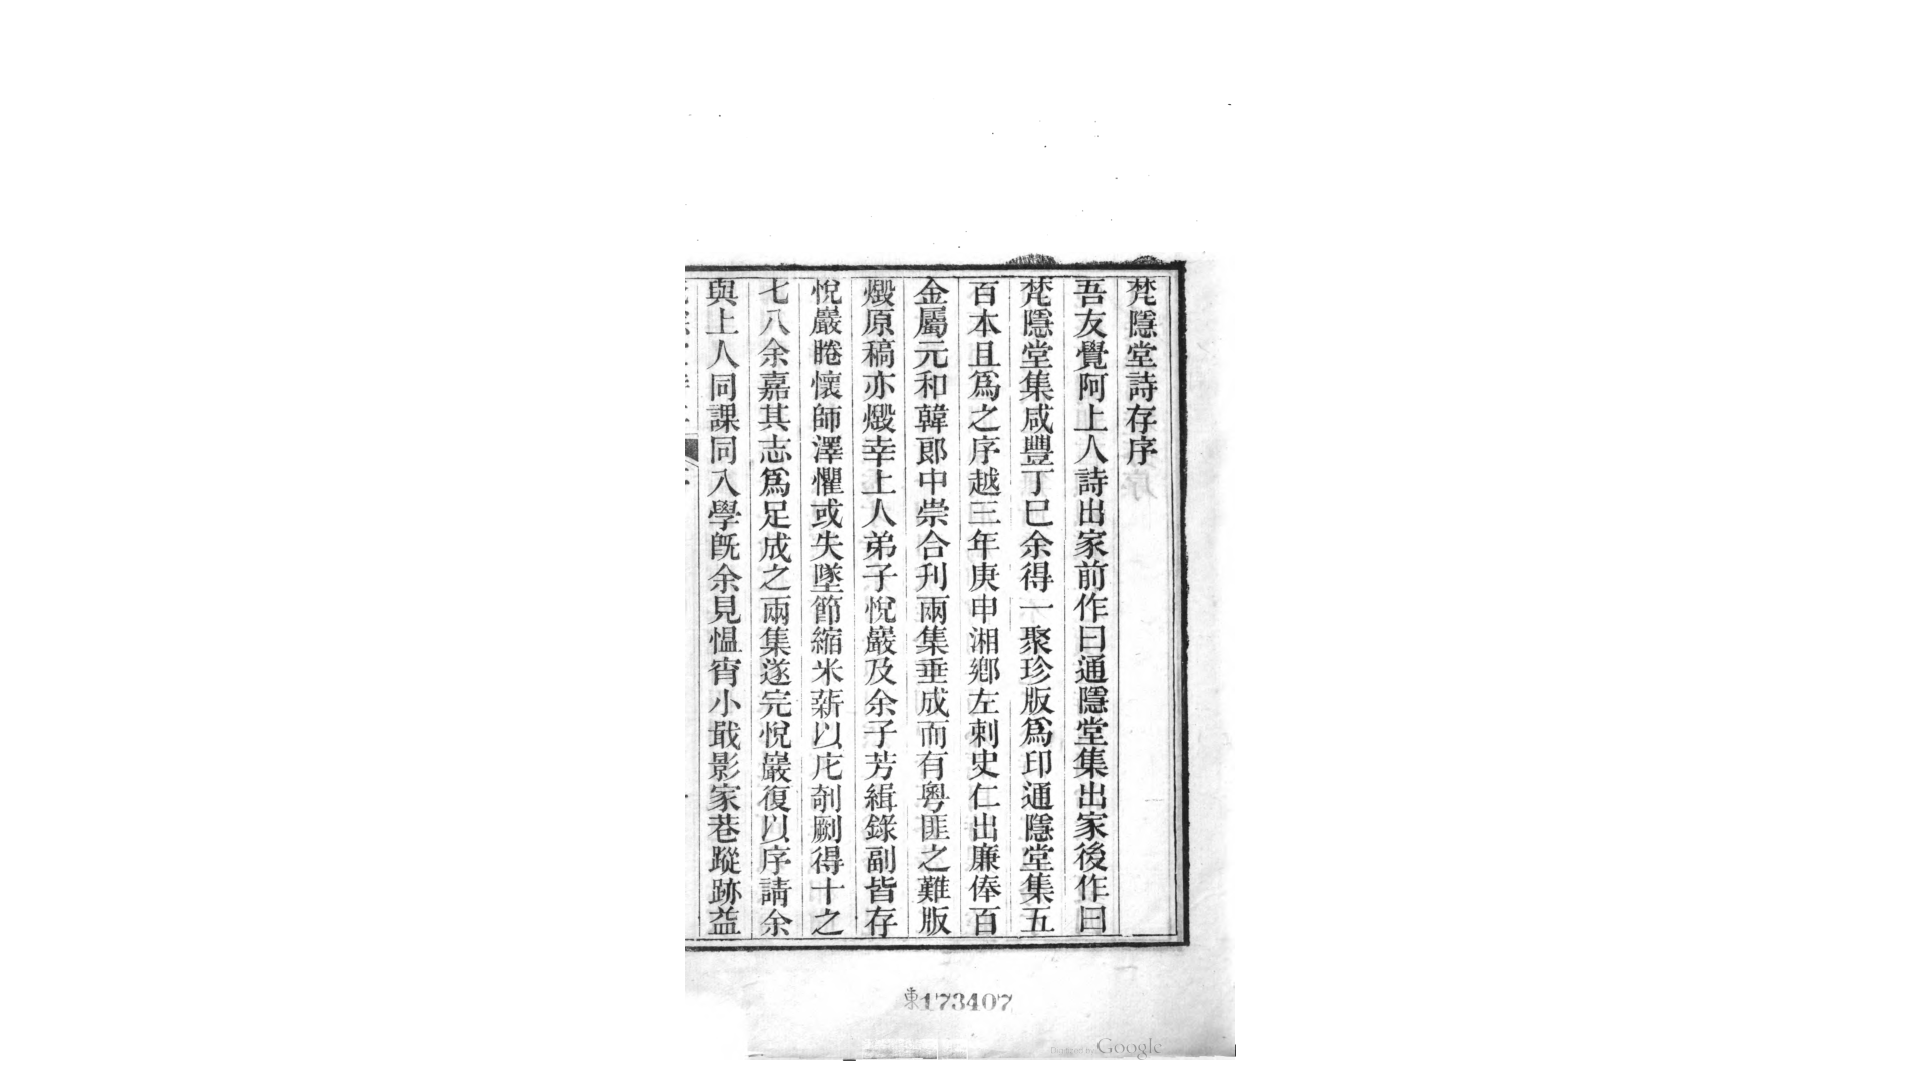 梵隱堂詩存序
吾友覺阿上人詩出家前作曰通隱堂集出家後作曰
梵隱堂集咸豐丁巳余得一聚珍版爲印通隱堂集五
百本且爲之序越三年庚申湘鄕左刺史仁出廉俸百
金屬元和韓郞中崇合刊兩集垂成而有粵匪之難版
燬原稿亦燬幸上人弟子悅巖及余子芳緝錄副皆存
悅巖睠懷師澤懼或失墜節縮米薪以庀剞劂得十之
七八余嘉其志爲足成之兩集遂完悅巖復以序請余
與上人同課同入學旣余見慍宵小戢影家巷蹤跡益
東173407
Digitized by Google